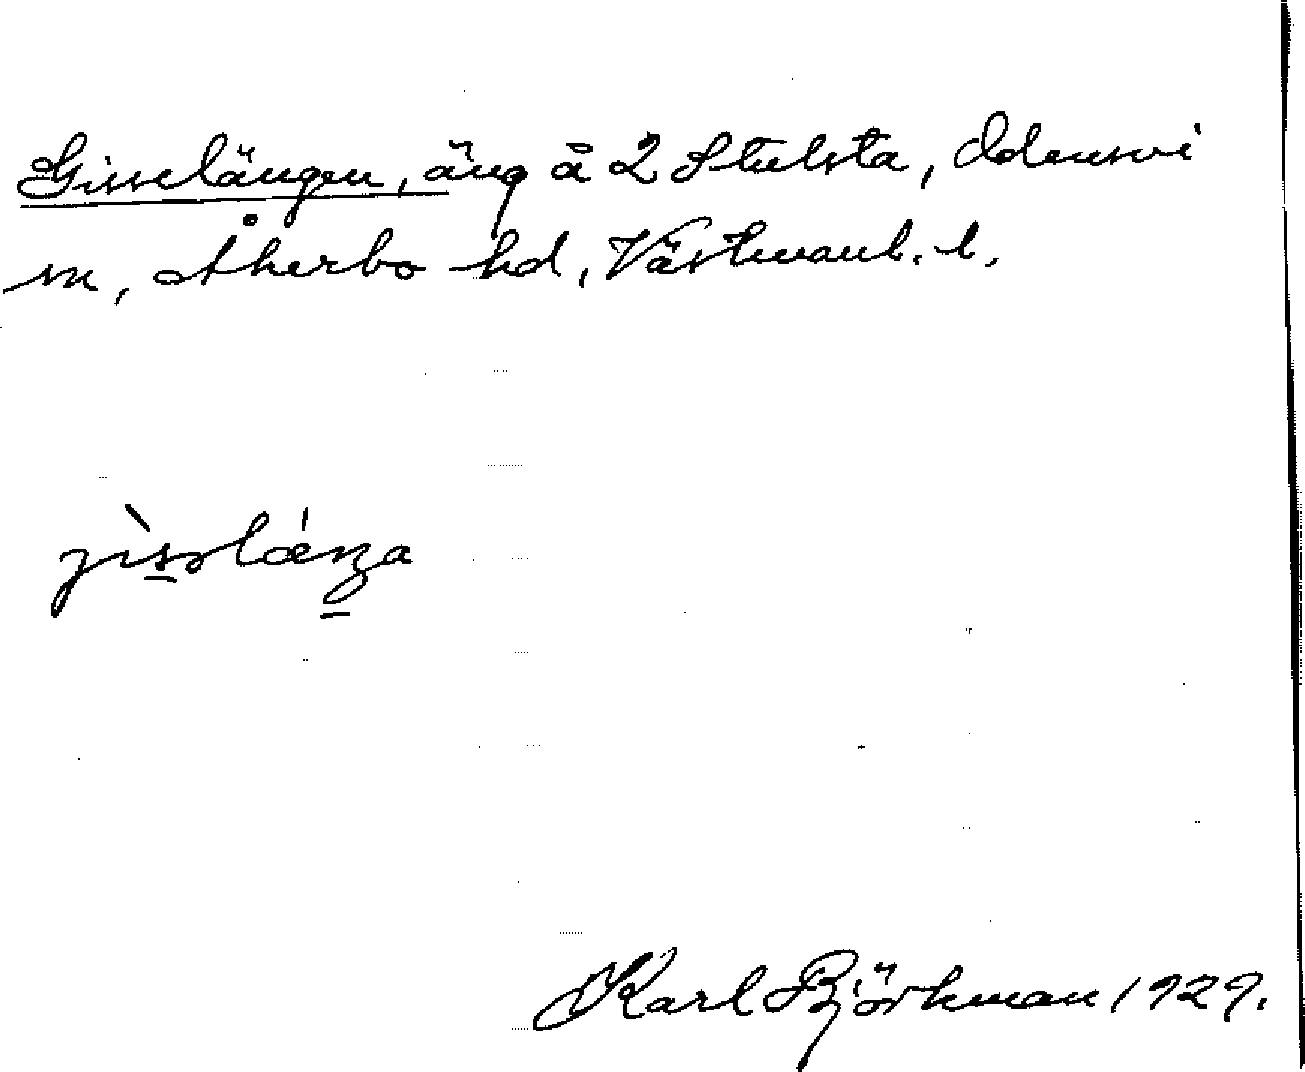 Gisselängen, äng å 2 Stulsta, Odensvi
sn, Åkerbo hd, Västmanl. l.
jìsslǽŋa
Karl Björkman 1929.